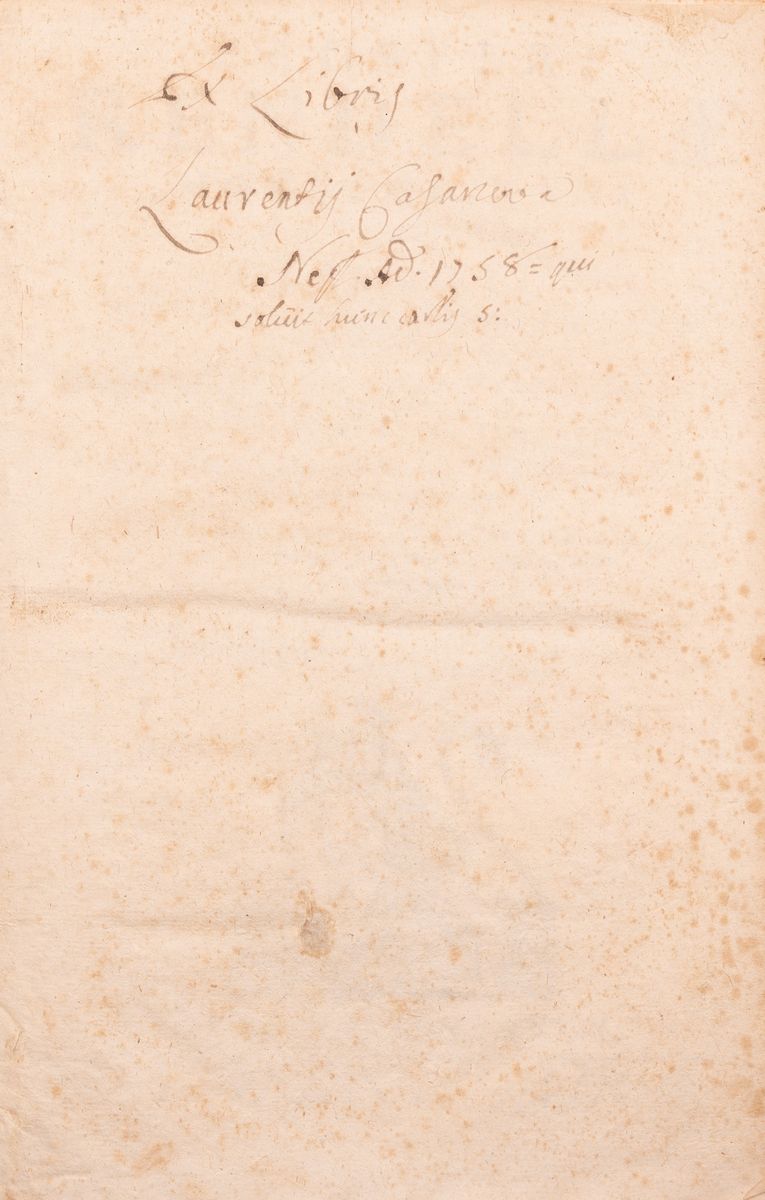 Ex Libris
Laurentij Casanova
Nes. Ad. 1758 = qui
soluit hunc carlis 5: